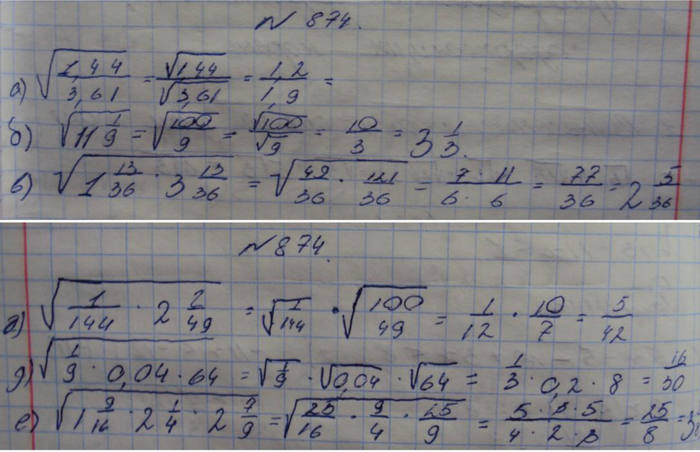 № 874.
а) √(1,44/3,61) = √1,44/√3,61 = 1,2/1,9 =
б) √(11 1/9) = √(100/9) = √100/√9 = 10/3 = 3 1/3.
в) √(1 13/36 · 3 13/36) = √(49/36 · 121/36) = 7 · 11/6 · 6 = 77/36 = 2 5/36
№ 874.
г) √(1/144 · 2 2/49) = √(1/144) · √(100/49) = 1/12 · 10/7 = 5/42
д) √(1/9 · 0,04 · 64) = √(1/9) · √0,04 · √64 = 1/3 · 0,2 · 8 = 16/30
е) √(1 9/16 · 2 1/4 · 2 7/9) = √(25/16 · 9/4 · 25/9) = 5 · 3 · 5/4 · 2 · 3 = 25/8 = 3